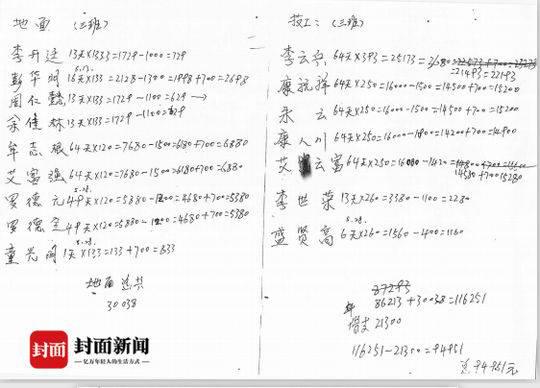 地面（三班）
李开进 13天×133=1729-1000=729
5.13.
彭华明 16天×133=2128-1300=1998+700=2698
周仁 13天×133=1729-1100=629 →
余佳林 13天×133=1729-1100=629
牟志银 64天×120=7680-1500=6180+700=6880
艾富强 64天×120=7680-1500=6180+700=6880
5.28.
罗德元 49天×120=5880-1200=4680+700=5380
罗德全 49天×120=5880-1200=4680+700=5380
5.28.
童光明 1天×133=133+700=833
地面总共
30038
技工：（三班）
李云 64天×393=25173
=21493=22193
康祝祥 64天×250=16000-1500=14500+700=15200
永云 64天×250=16000-1500=14500+700=15200
康人川 64天×250=16000-1800=14200+700=14900
艾云富 64天×250=16000-1420=
14580+700 15280
李世荣 13天×260=3380-1100=2280
5.28.
盛贤高 6天×260=1560-400=1160
87293
86213+30038=116251
借支 21300
116251-21300=94951
总94951元
封面
封面新闻
亿万年轻人的生活方式